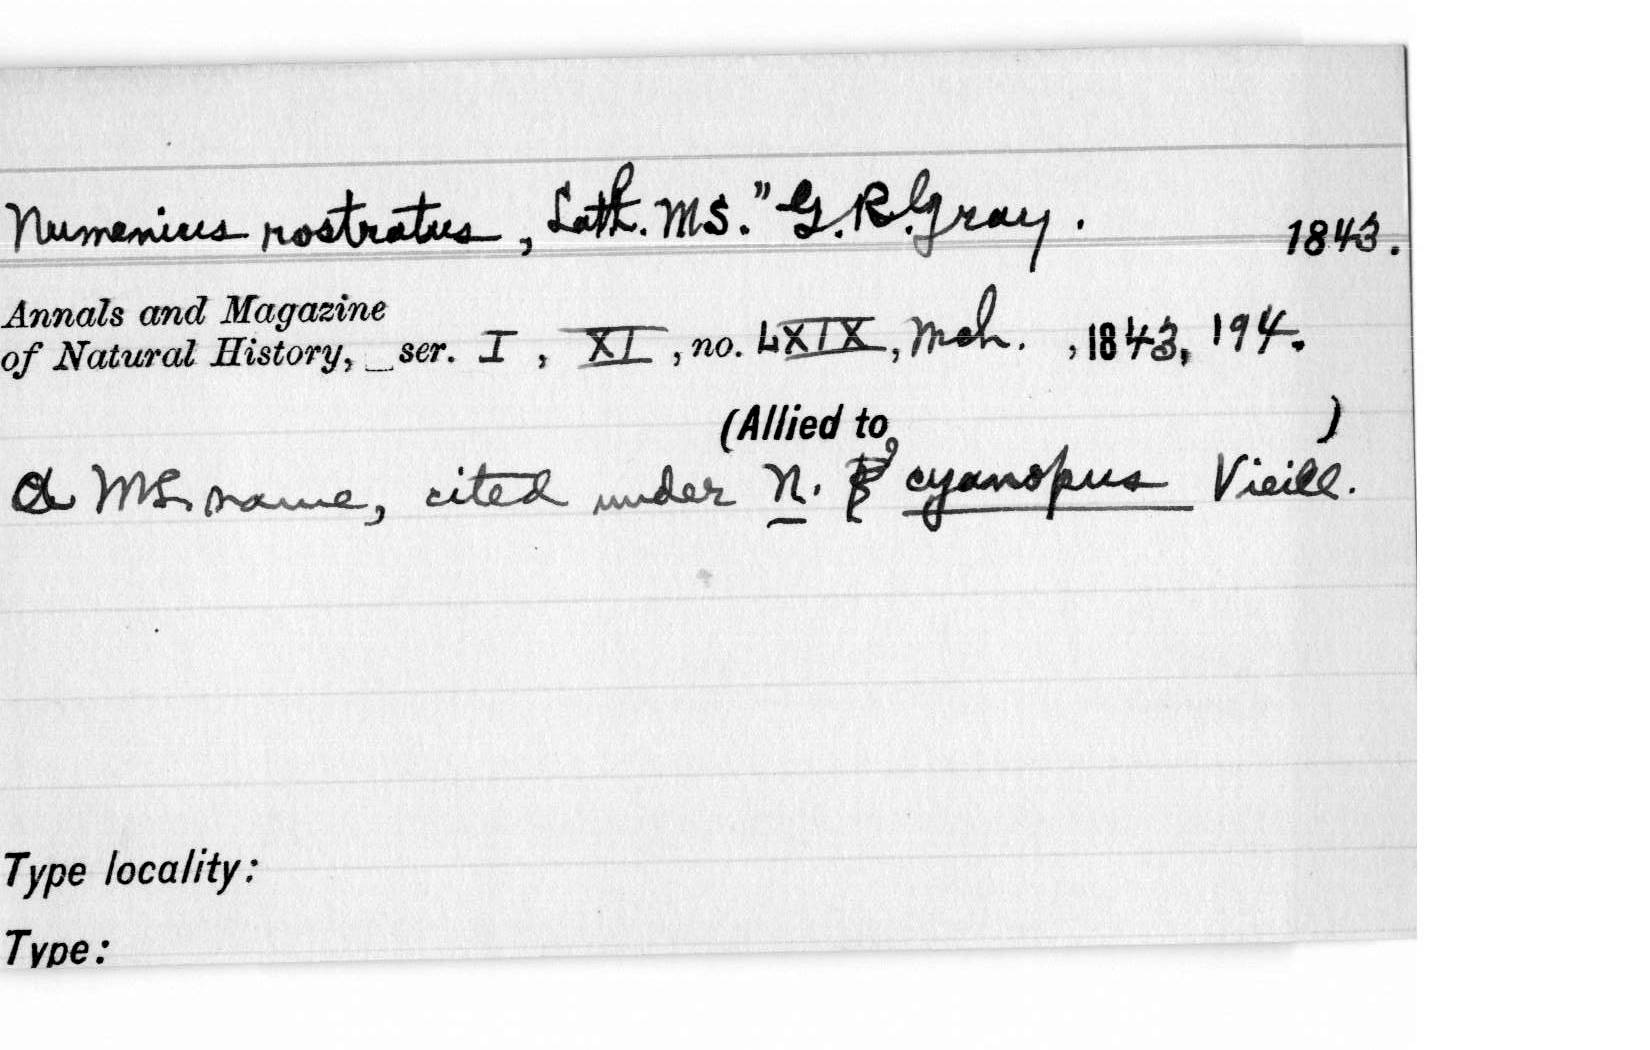 Numenius rostratus, Lath. MS." G.R.Gray. 1843.
Annals and Magazine
of Natural History, _ser. I, XI, no. LXIX, Mch. , 1843, 194.
(Allied to )
A MS. name, cited under N. ? cyanopus Vieill.
Type locality:
Type: